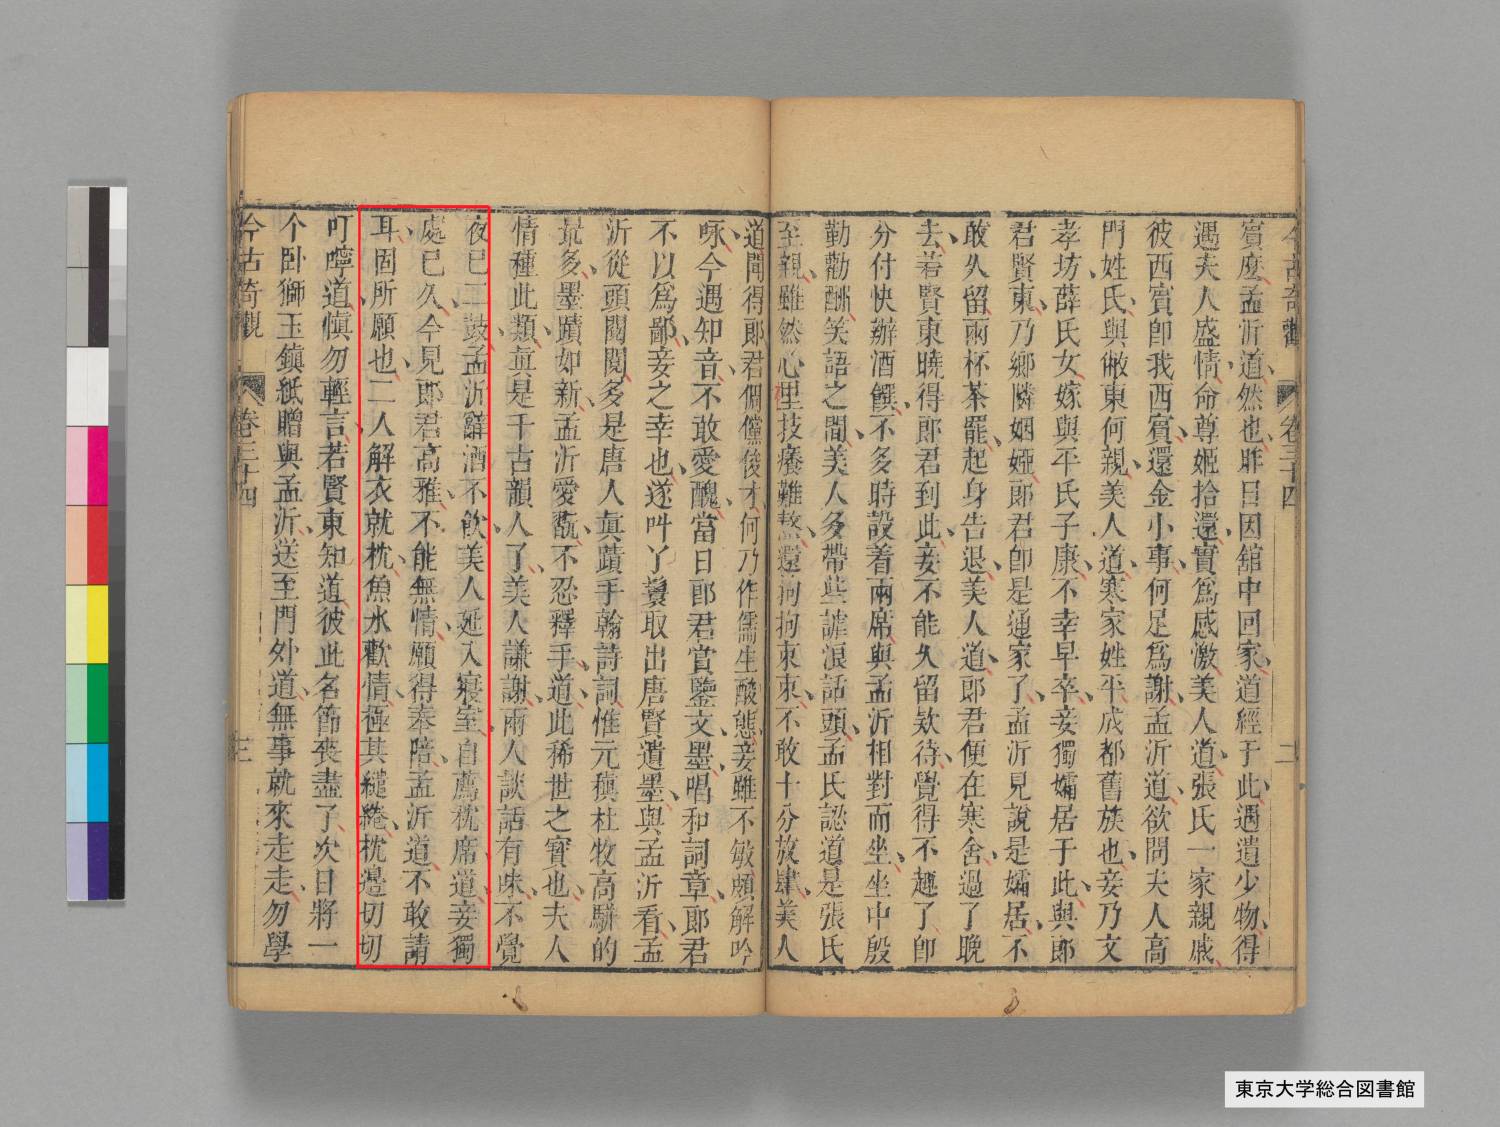 今古奇觀 卷三十四 二
賓麽孟沂道然也昨日因舘中回家道經于此遇遺少物得
遇夫人盛情命尊姬拾還實爲感激美人道張氏一家親戚
彼西賓卽我西賓還金小事何足爲謝孟沂道欲問夫人高
門姓氏與敝東何親美人道寒家姓平成都舊族也妾乃文
孝坊薛氏女嫁與平氏子康不幸早卒妾獨孀居于此與郎
君賢東乃鄉隣姻婭郎君卽是通家了孟沂見說是孀居不
敢久留兩杯茶罷起身告退美人道郎君便在寒舍過了晚
去若賢東曉得郎君到此妾不能久留欵待覺得不趣了卽
分付快辦酒饌不多時設着兩席與孟沂相對而坐坐中殷
勤勸酬笑語之間美人多帶些謔浪話頭孟氏認道是張氏
至親雖然心里技癢難熬還拘拘束束不敢十分放肆美人
道聞得郎君倜儻俊才何乃作儒生酸態妾雖不敏頗解吟
咏今遇知音不敢愛醜當日郎君賞鑒文墨唱和詞章郎君
不以爲鄙妾之幸也遂呌丫鬟取出唐賢遺墨與孟沂看孟
沂從頭閱閱多是唐人眞蹟手翰詩詞惟元稹杜牧高駢的
最多墨蹟如新孟沂愛翫不忍釋手道此稀世之寶也夫人
情種此類眞是千古韻人了美人謙謝兩人談話有味不覺
夜已二鼓孟沂辭酒不飲美人延入寢室自薦枕席道妾獨
處已久今見郎君高雅不能無情願得奉陪孟沂道不敢請
耳固所願也二人解衣就枕魚水歡情極其繾綣枕邊切切
叮嚀道愼勿輕言若賢東知道彼此名節喪盡了次日將一
个卧獅玉鎮紙贈與孟沂送至門外道無事就來走走勿學
今古奇觀 卷三十四 三
東京大学総合図書館